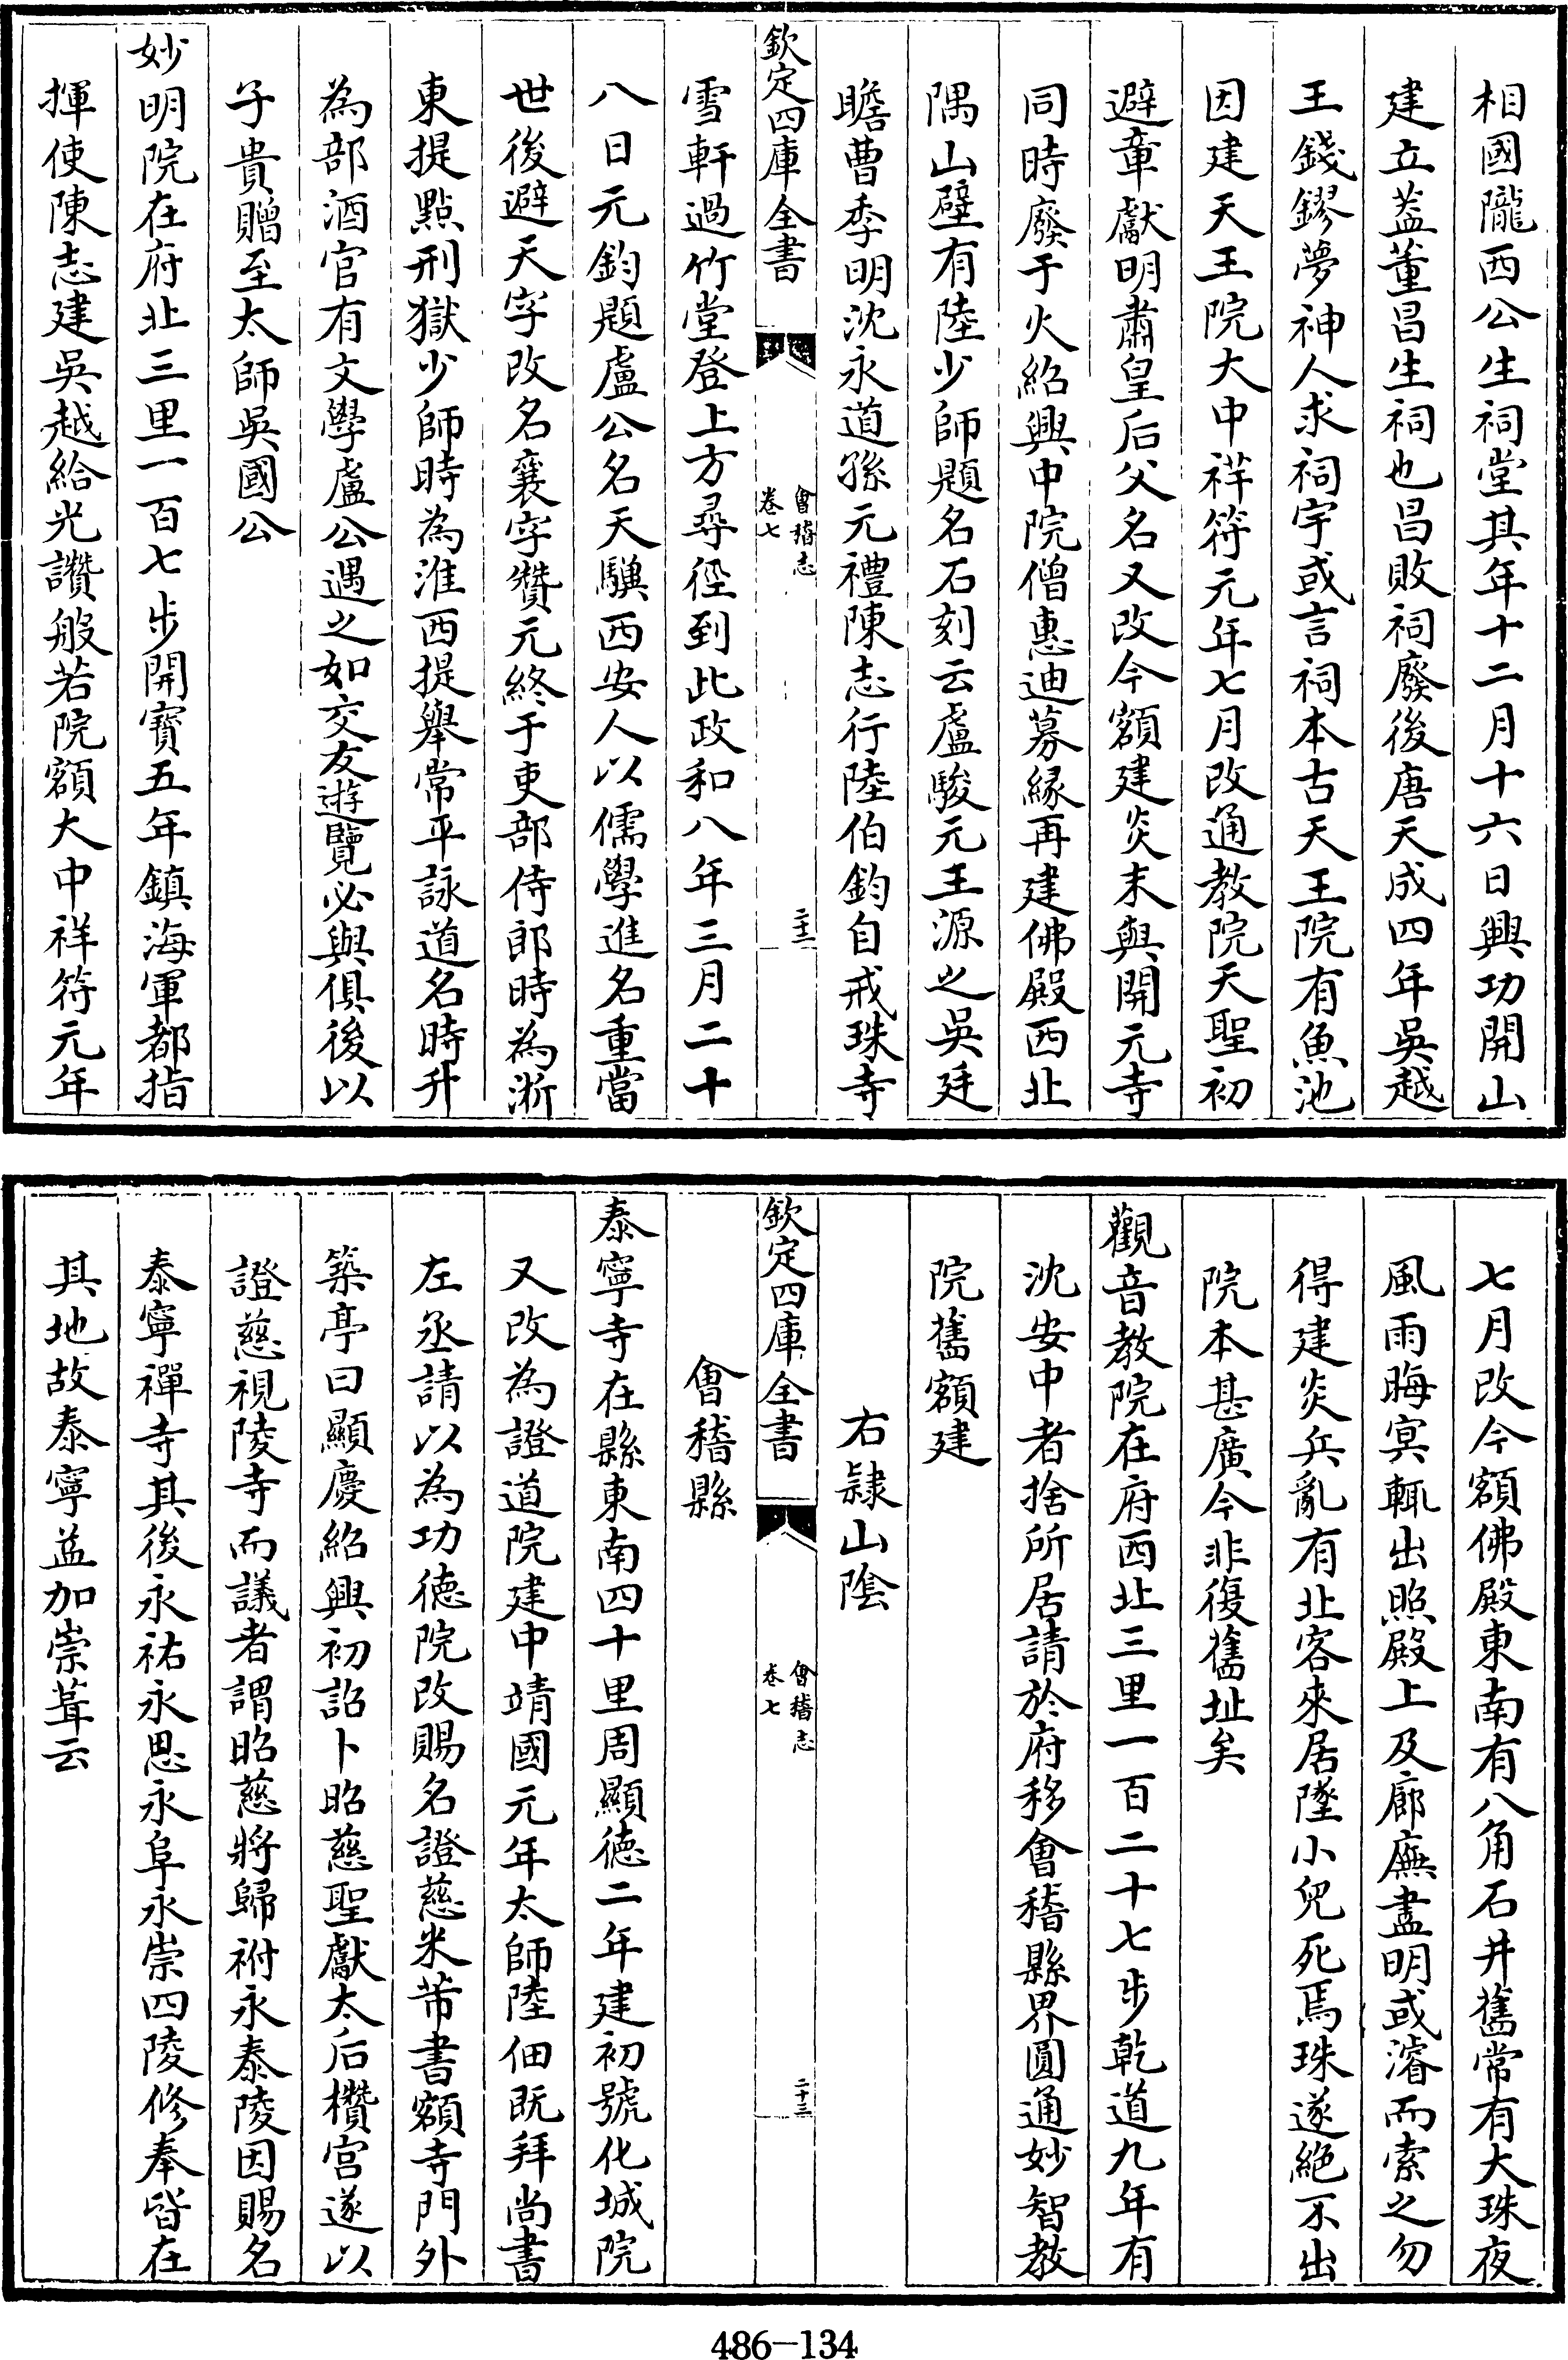 相國隴西公生祠堂其年十二月十六日興功開山
建立葢董昌生祠也昌敗祠廢後唐天成四年吳越
王錢鏐夢神人求祠宇或言祠本古天王院有魚池
因建天王院大中祥符元年七月改通教院天聖初
避章獻明肅皇后父名又改今額建炎末與開元寺
同時廢于火紹興中院僧惠迪募縁再建佛殿西北
隅山壁有陸少師題名石刻云盧駿元王源之吳廷
瞻曹季明沈永道孫元禮陳志行陸伯鈞自戒珠寺
欽定四庫全書
會稽志
卷七
二十二
雪軒過竹堂登上方尋徑到此政和八年三月二十
八日元鈞題盧公名天驥西安人以儒學進名重當
世後避天字改名襄字贊元終于吏部侍郎時為浙
東提點刑獄少師時為淮西提舉常平詠道名時升
為部酒官有文學盧公遇之如交友遊覽必與俱後以
子貴贈至太師吳國公
妙明院在府北三里一百七步開寶五年鎮海軍都指
揮使陳志建吳越給光讚般若院額大中祥符元年
七月改今額佛殿東南有八角石井舊常有大珠夜
風雨晦冥輒出照殿上及廊廡盡明或濬而索之勿
得建炎兵亂有北客來居墜小兒死焉珠遂絕不出
院本甚廣今非復舊址矣
觀音教院在府西北三里一百二十七步乾道九年有
沈安中者捨所居請於府移會稽縣界圓通妙智教
院舊額建
右隷山隂
欽定四庫全書
會稽志
卷七
二十三
會稽縣
泰寧寺在縣東南四十里周顯德二年建初號化城院
又改為證道院建中靖國元年太師陸佃既拜尚書
左丞請以為功德院改賜名證慈米芾書額寺門外
築亭曰顯慶紹興初詔卜昭慈聖獻太后欑宫遂以
證慈視陵寺而議者謂昭慈將歸祔永泰陵因賜名
泰寧禪寺其後永祐永思永阜永崇四陵修奉皆在
其地故泰寧益加崇葺云
486-134